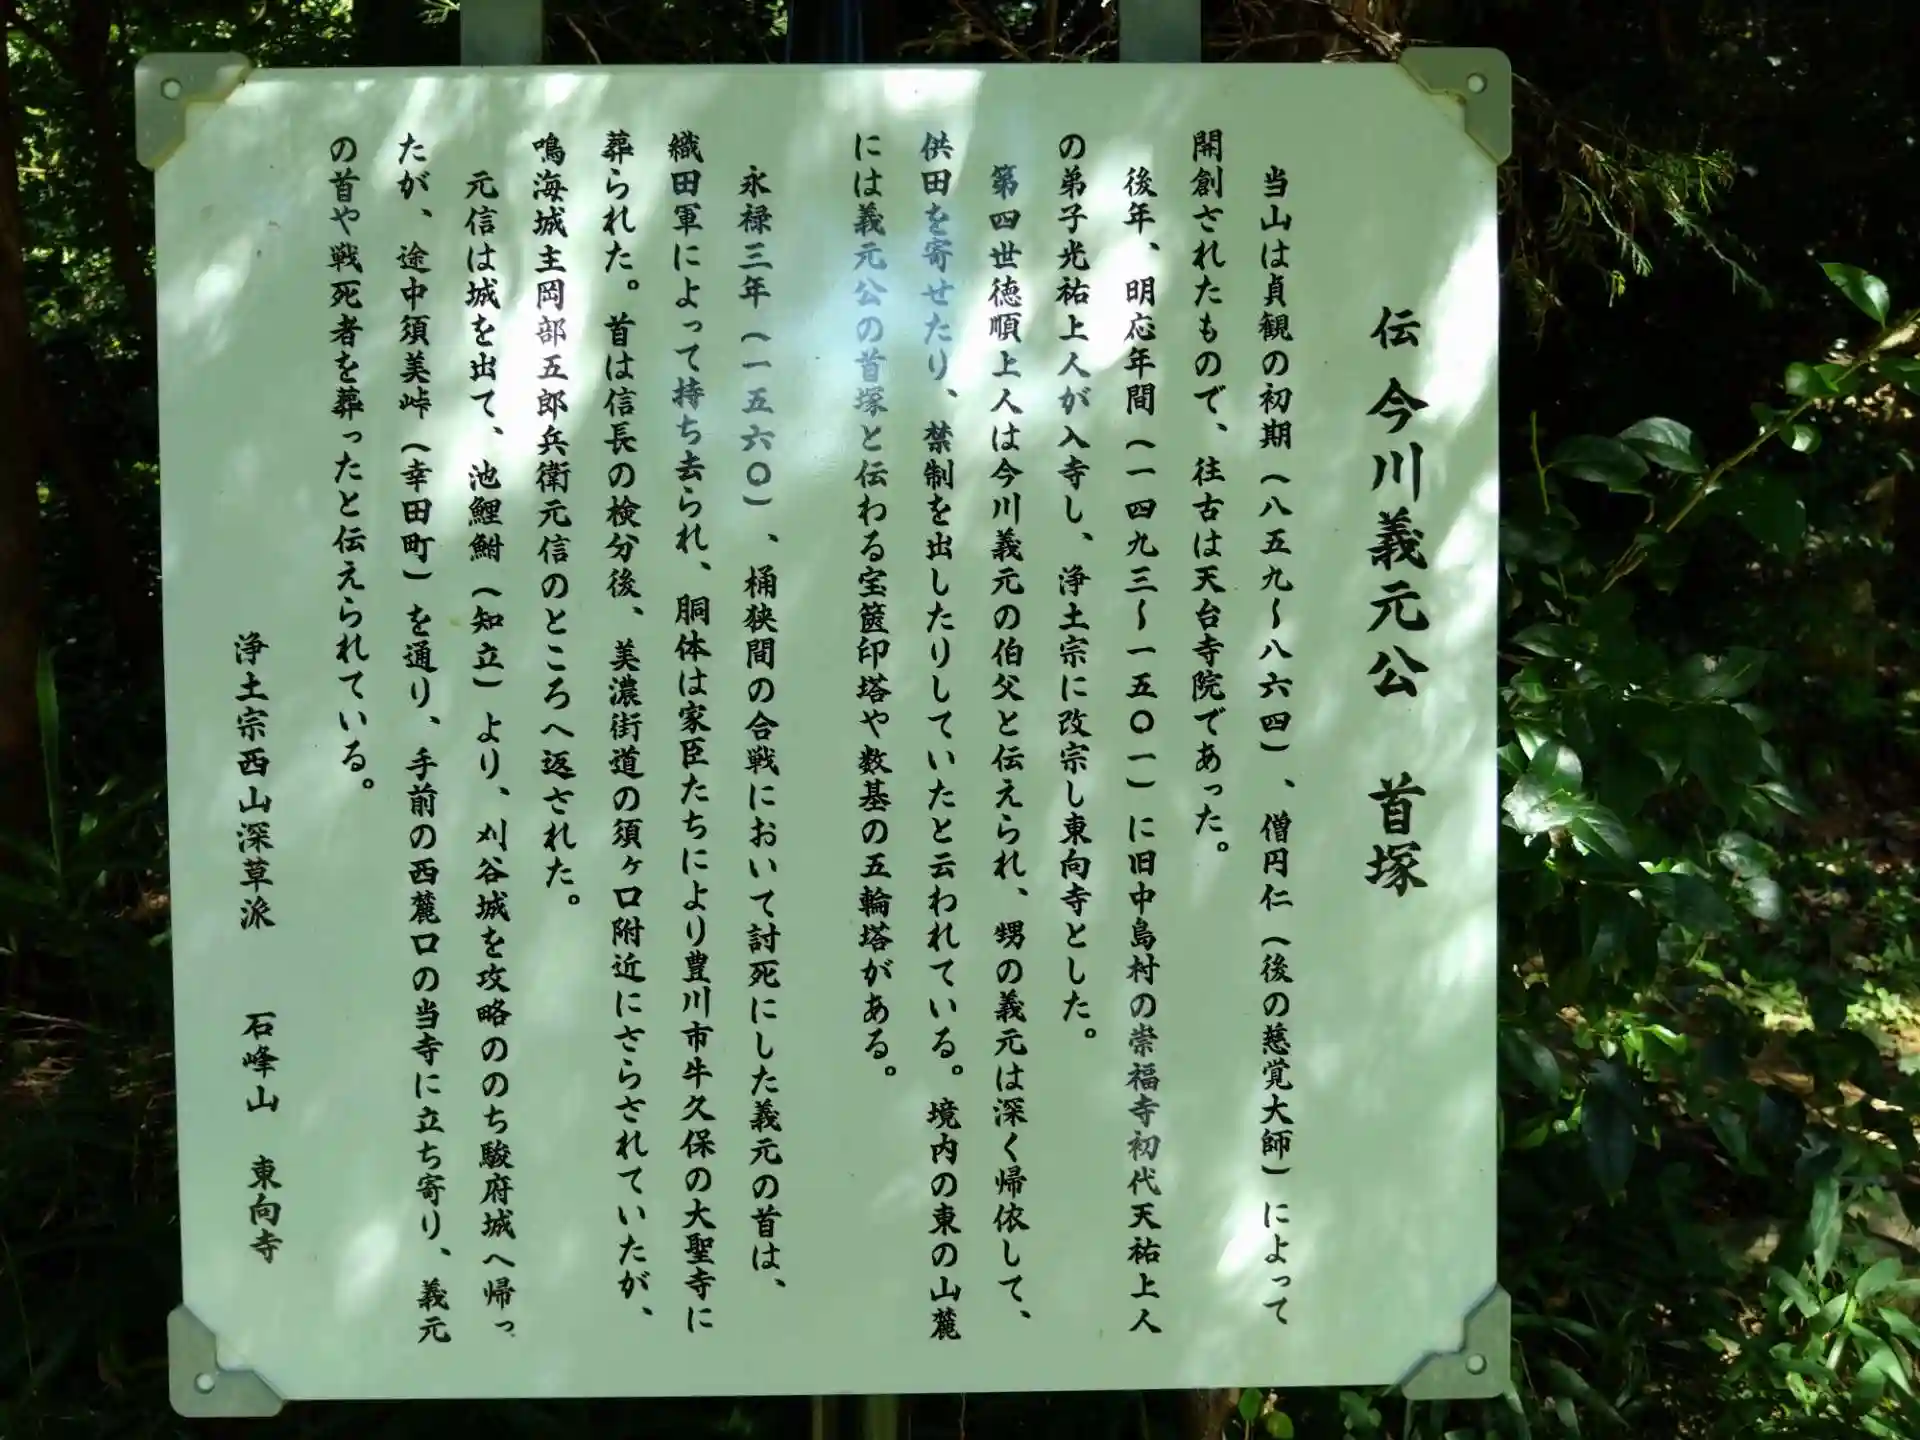 伝 今川義元公 首塚
当山は貞観の初期（八五九～八六四）、僧円仁（後の慈覚大師）によって
開創されたもので、往古は天台寺院であった。
後年、明応年間（一四九三～一五〇一）に旧中島村の崇福寺初代天祐上人
の弟子光祐上人が入寺し、浄土宗に改宗し東向寺とした。
第四世徳順上人は今川義元の伯父と伝えられ、甥の義元は深く帰依して、
供田を寄せたり、禁制を出したりしていたと云われている。境内の東の山麓
には義元公の首塚と伝わる宝篋印塔や数基の五輪塔がある。
永禄三年（一五六〇）、桶狭間の合戦において討死にした義元の首は、
織田軍によって持ち去られ、胴体は家臣たちにより豊川市牛久保の大聖寺に
葬られた。首は信長の検分後、美濃街道の須ヶ口附近にさらされていたが、
鳴海城主岡部五郎兵衛元信のところへ返された。
元信は城を出て、池鯉鮒（知立）より、刈谷城を攻略ののち駿府城へ帰っ
たが、途中須美峠（幸田町）を通り、手前の西麓口の当寺に立ち寄り、義元
の首や戦死者を葬ったと伝えられている。
浄土宗西山深草派 石峰山 東向寺